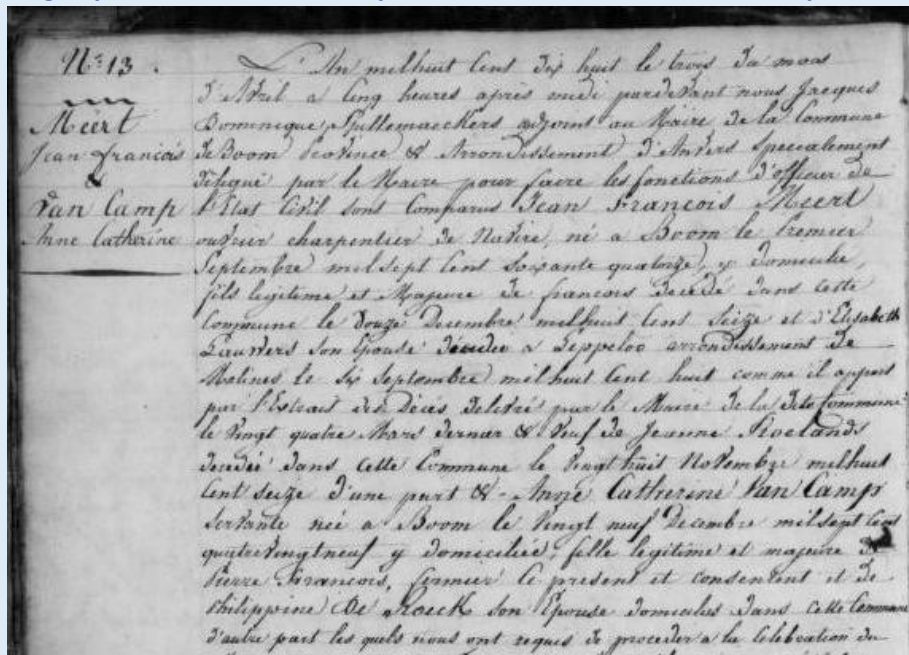 N.o 13.
Méért
Jean françois
&
Van Camp
Anne Catherine
L'An milhuit Cent dix huit le trois du mois
d'Avril a Cinq heures après midi pardevant nous Jacques
Dominique Spillemaeckers adjoint au Maire de la Commune
de Boom Province & Arrondissement d'Anvers specialement
délegué par le Maire pour faire les fonctions d'officier de
l'Etat Civil sont Comparus Jean François Méért
ouvrier charpentier de Navire, né a Boom le Premier
Septembre milsept Cent soixante quatorze, y domicilié,
fils legitime et Majeure de francois décédé dans cette
Commune le douze Decembre milhuit Cent Seize et d'Elisabeth
Lauwers son Epouse décédée a Leppeloo arrondissement de
Malines le six Septembre milhuit Cent huit comme il appert
par l'Extrait des Décés delivré par le Maire de la dite Commune
le Vingt quatre Mars dernier & Veuf de Jeanne Roelands
decedée dans cette Commune le Vingt huit Novembre milhuit
Cent seize d'une part & Anne Catherine Van Camp
Servante née a Boom le Vingt neuf Decembre milsept Cent
quatreVingtneuf y domiciliée, fille legitime et majeure de
Pierre François, fermier ce present et consentent et de
Philippine De Roeck son Epouse domiciliés dans cette Commune
d'autre part les quels nous ont requis de proceder a la Celebration du